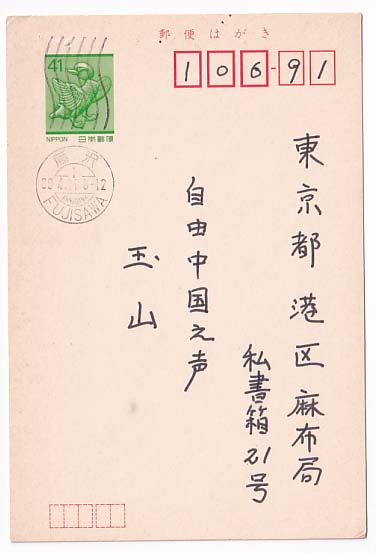 郵便はがき
106-91
41
NIPPON 日本郵便
藤沢
FUJISAWA
東京都港区麻布局
私書箱21号
自由中国之声
玉山